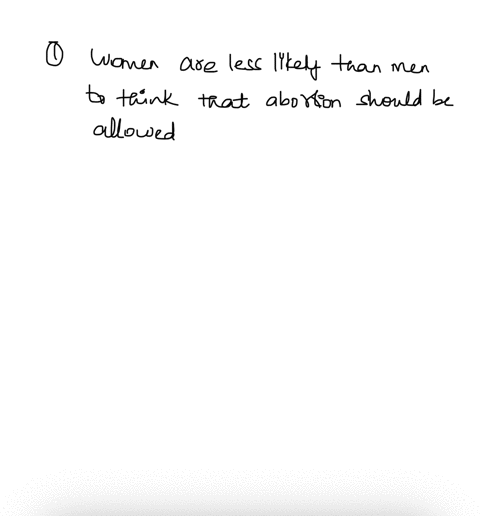 ① Women are less likely than men
to think that abortion should be
allowed